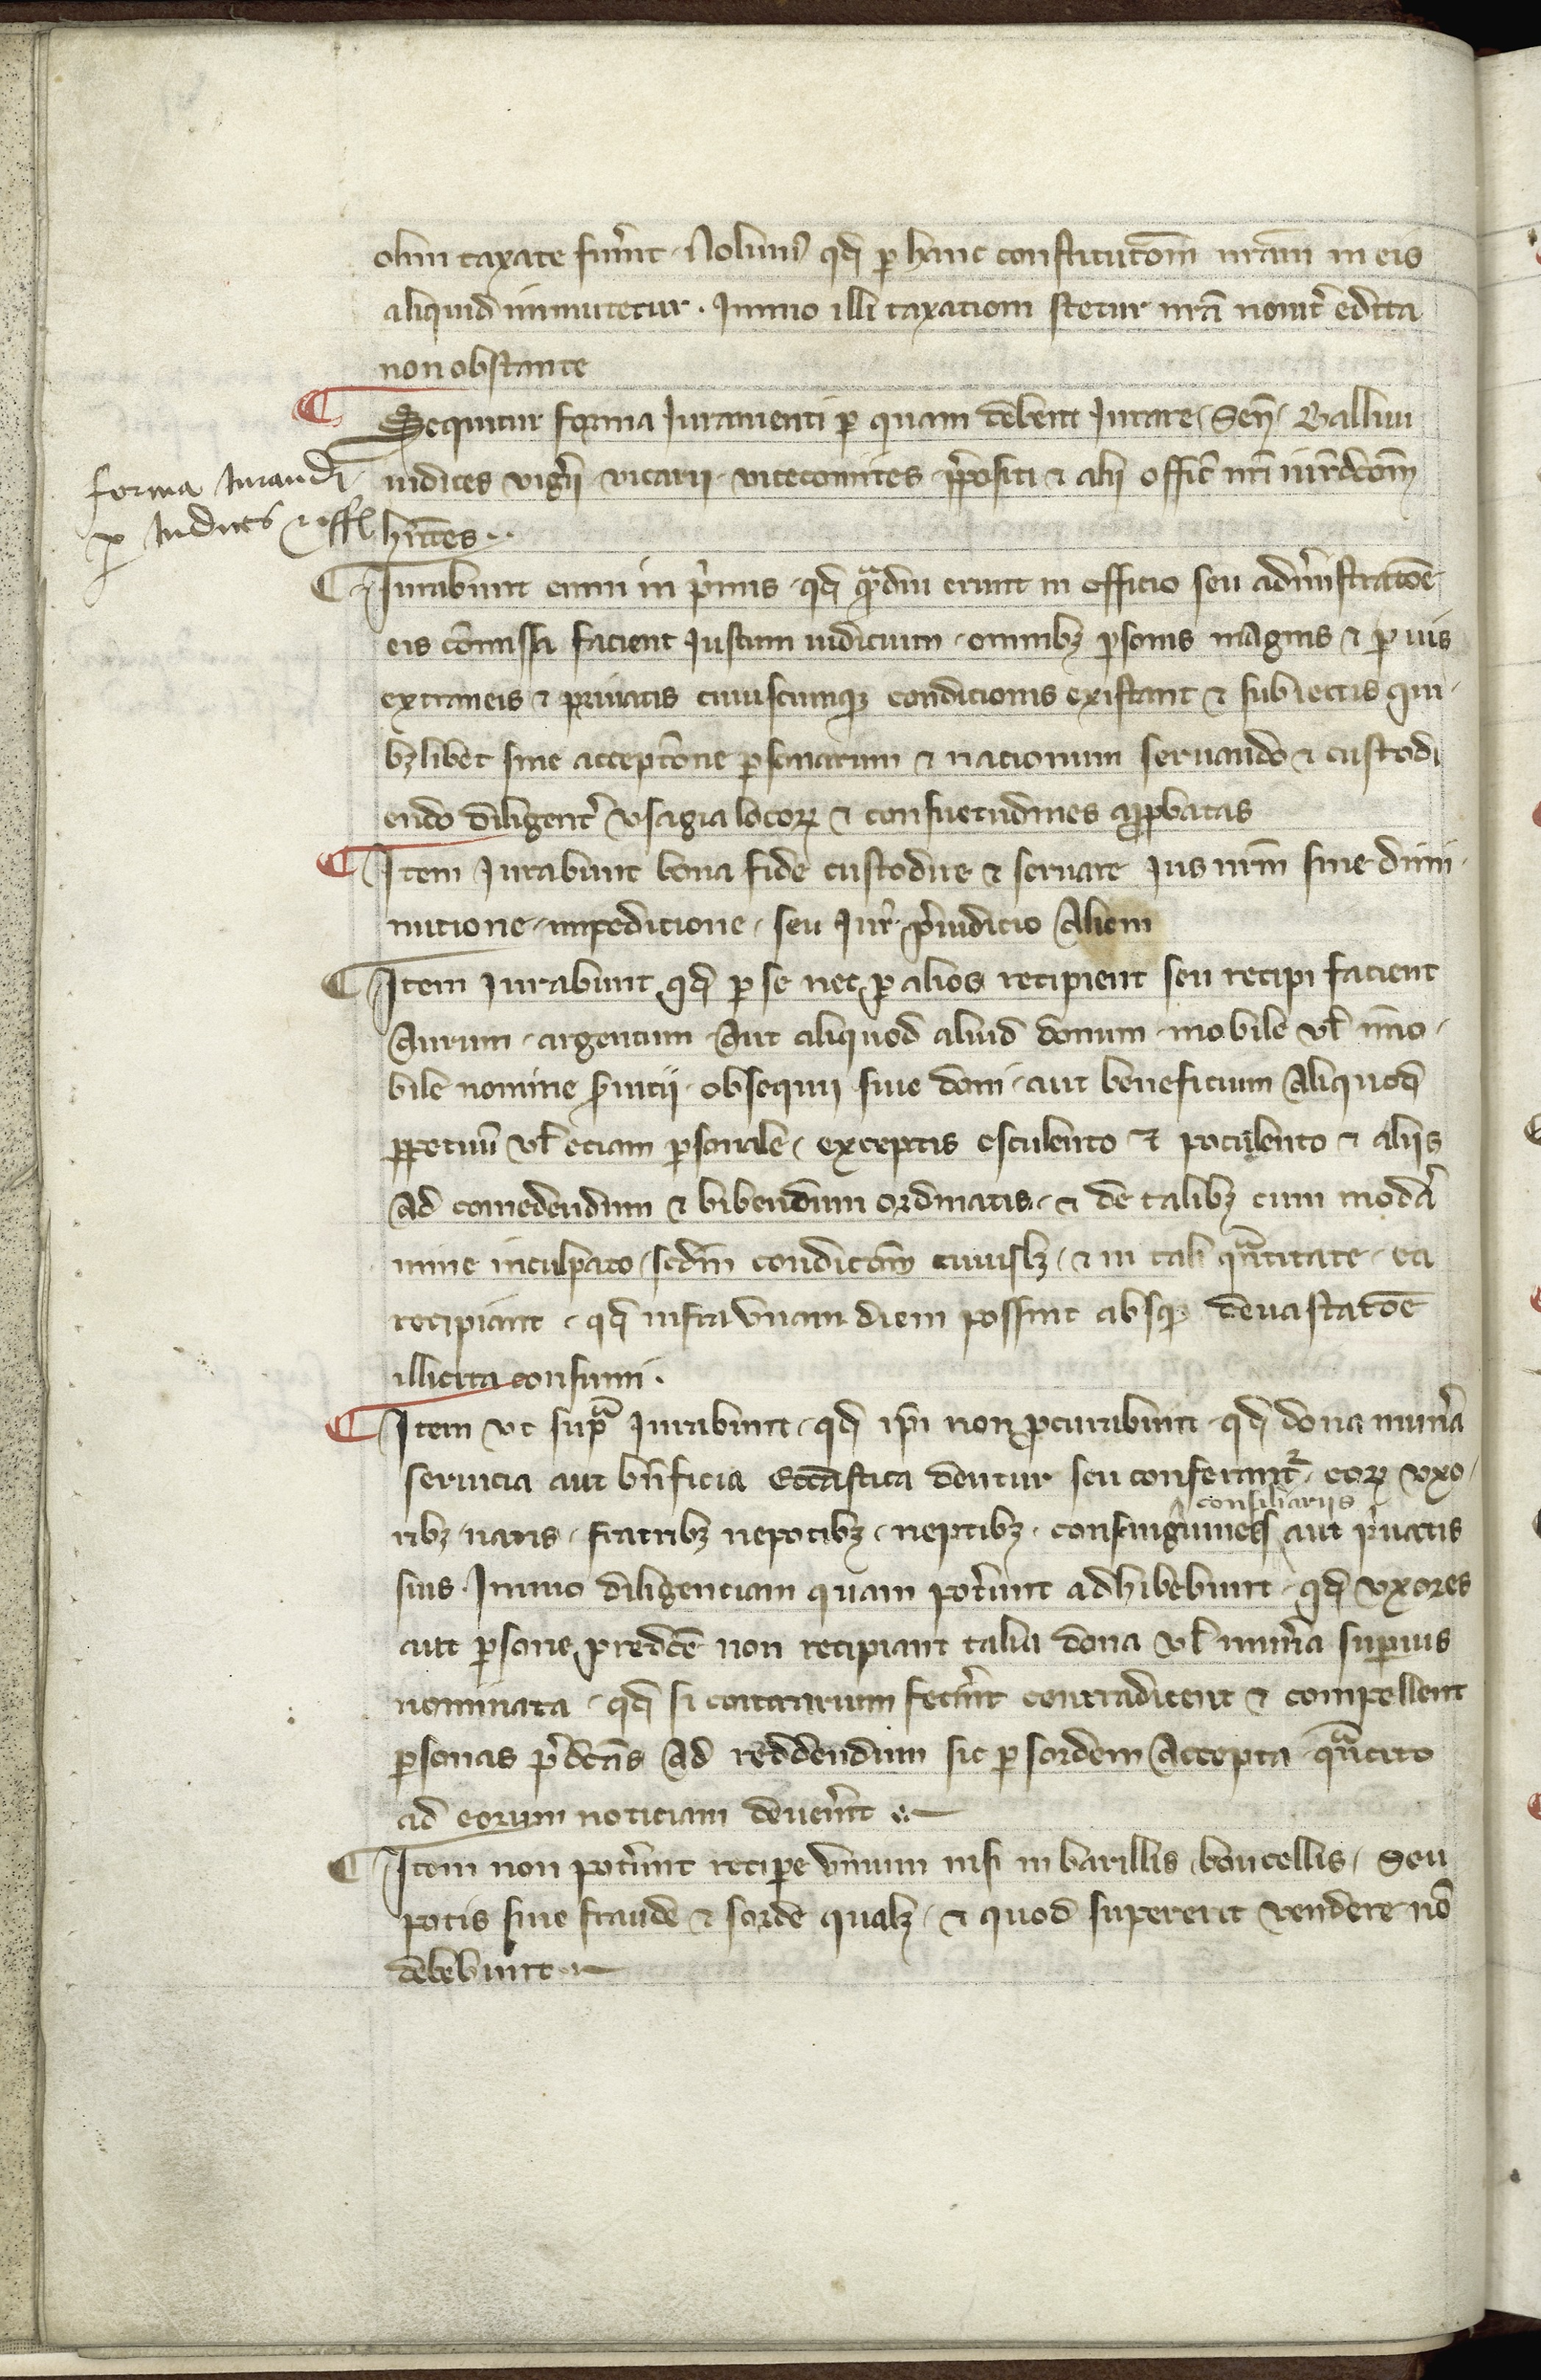 olim taxate fu'int . Nolum9 qd p hanc constitutōm nrām in eis
aliquid inmutetur . Immo illi taxationi stetur nrā nouit' edicta
non obstante
¶ Sequitur forma Juramenti p quam debent Jurare Sen̄ . Balliui
iudices vigr̄ii vicarii vicecomites p̄positi & alij offic̄ nr̄i iur̄dcōm
hn̄tes ..
forma Jurandi
p Judices & offi
¶ Jurabunt enim in p'mis qd q̄ʒdiu erunt in officio seu adm̄istratōe
eis cōmissa facient Justum iudicium omnibʒ psonis magnis & p uis
extraneis & priuatis cuiuscumqʒ condicionis existant & subiectis qui
bʒlibet sine acceptōne psonarum & nacionum seruando & custodi
endo diligent' vsagia locoꝝ & consuetudines appbatas
¶ Item Jurabunt bona fide custodire & seruare Jus nrm̄ sine dimi
nutione impeditione seu Jur' p̄iudicio Alieni
¶ Item Jurabunt qd p se nec p alios recipient seu recipi facient
Aurum argentum Aut aliquod aliud donum mobile vl̄ im̄o
bile nomine s'uitii obsequii siue doni aut beneficium Aliquod
ppetuū vl̄ etiam psonale exceptis esculento & poculento & aliis
Ad comedendum & bibendum ordinatis & de talibʒ cum modā
mine inculpato scdm̄ condicōm cuiuslʒ & in tali q̄ntitate ea
recipiant qd infra vnam diem possint absqʒ deuastatōe
illicita consumi .
¶ Item vt supᵃ Jurabunt qd ipi non pcurabunt qd dona mun'a
seruicia aut bn̄ficia Eccāstica dentur seu conferant' eoꝝ vxo
ribʒ natis fratribʒ nepotibʒ neptibʒ consanguineis ^consiliariis aut p'uatis
suis Immo diligentiam quam pot'unt adhibebunt qd vxores
aut psone predcē non recipiant talia dona vl̄ mun'a supius
nominata qd si contrarium fec'int contradicent & compellent
psonas p̄dcās Ad reddendum sic p sordem Accepta q̄ʒcito
ad eorum noticiam deuen'it
¶ Item non pot'unt recipe vinum nisi in barillis boucellis Seu
potis sine fraude & sorde qualʒ & quod supererit vendere nō
debebunt